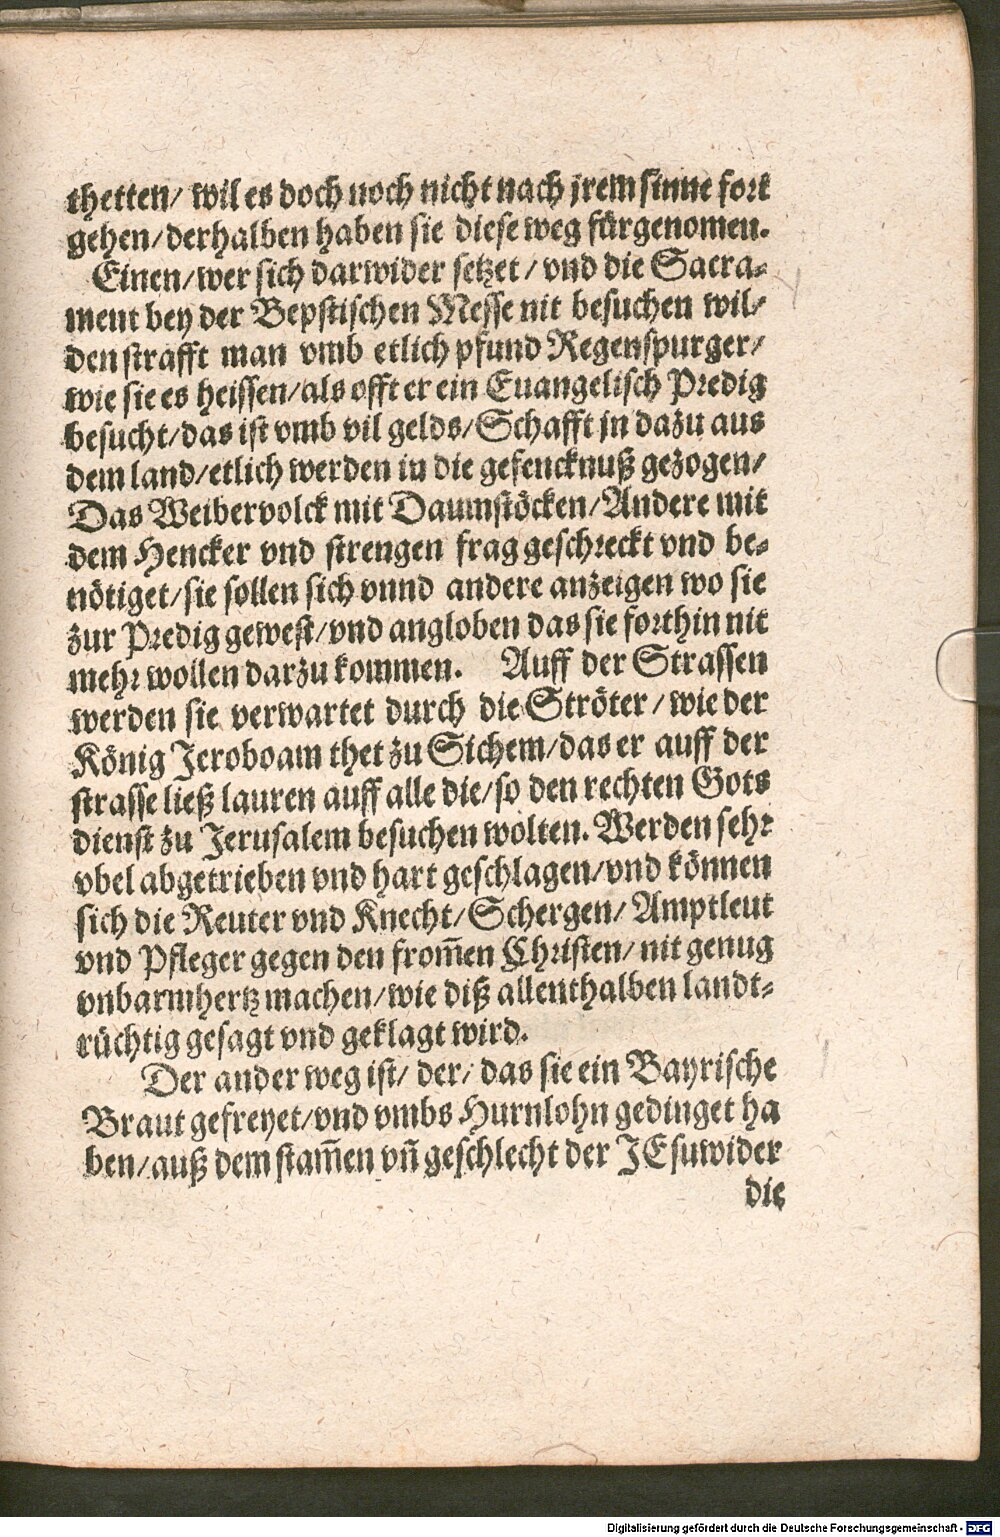 thetten/ wil es doch noch nicht nach jrem sinne fort
gehen/derhalben haben sie diese weg fürgenomen.
Einen/wer sich darwider setzet/vnd die Sacra-
ment bey der Bepstischen Messe nit besuchen wil/
den strafft man vmb etlich pfund Regenspurger/
wie sie es heissen/als offt er ein Euangelisch Predig
besucht/das ist vmb vil gelds/Schafft jn dazu aus
dem land/etlich werden in die gefencknuß gezogen/
Das Weibervolck mit Daumstöcken/Andere mit
dem Hencker vnd strengen frag geschreckt vnd be-
nötiget/sie sollen sich vnnd andere anzeigen wo sie
zur Predig gewest/vnd angloben das sie forthin nit
mehr wollen darzu kommen. Auff der Strassen
werden sie verwartet durch die Ströter/wie der
König Jeroboam thet zu Sichem/das er auff der
strasse ließ lauren auff alle die/so den rechten Gots
dienst zu Jerusalem besuchen wolten. Werden sehr
vbel abgetrieben vnd hart geschlagen/vnd können
sich die Reuter vnd Knecht/Schergen/Amptleut
vnd Pfleger gegen den from̄en Christen/nit genug
vnbarmhertz machen/wie diß allenthalben landt-
rüchtig gesagt vnd geklagt wird.
Der ander weg ist/ der/ das sie ein Bayrische
Braut gefreyet/vnd vmbs Hurnlohn gedinget ha
ben/auß dem stam̄en vn̄ geschlecht der JEsuwider
die
Digitalisierung gefördert durch die Deutsche Forschungsgemeinschaft - DFG